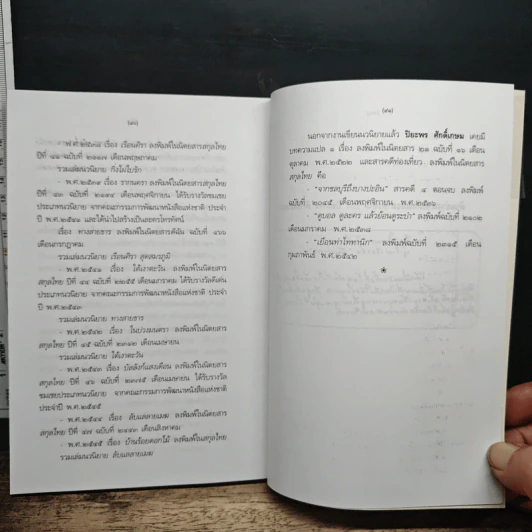 (๘๐)
พ.ศ.๒๕๓๘ เรื่อง เรือนศิรา ลงพิมพ์ในนิตยสารสกุลไทย
ปีที่ ๔๑ ฉบับที่ ๒๑๑๗ เดือนพฤษภาคม
รวมเล่มนวนิยาย กิ่งไผ่ใบรัก
- พ.ศ.๒๕๓๙ เรื่อง ลงพิมพ์ในนิตยสารสกุลไทย
ปีที่ ๔๓ ฉบับที่ เดือนพฤศจิกายน ได้รับรางวัลชมเชย
ประเภทนวนิยาย จากคณะกรรมการพัฒนาหนังสือแห่งชาติ ประจำ
ปี พ.ศ. และได้นำไปสร้างเป็นละครโทรทัศน์
เรื่อง ทางสายธาร ลงพิมพ์ในนิตยสารดิฉัน ฉบับที่
เดือนกรกฎาคม
รวมเล่มนวนิยาย เรือนศิรา สุดสมรภูมิ
- พ.ศ.๒๕๔๑ เรื่อง ใต้เงาตะวัน ลงพิมพ์ในนิตยสารสกุลไทย
ปีที่ ๔๔ ฉบับที่ ๒๒๕๕ เดือนมกราคม ได้รับรางวัลดีเด่น
ประเภทนวนิยาย จากคณะกรรมการพัฒนาหนังสือแห่งชาติ ประจำ
ปี พ.ศ.๒๕๔๓
รวมเล่มนวนิยาย ทางสายธาร
- พ.ศ.๒๕๔๒ เรื่อง ในบ่วงมนตรา ลงพิมพ์ในนิตยสาร
สกุลไทย ปีที่ ๔๕ ฉบับที่ ๒๓๑๒ เดือนเมษายน
รวมเล่มนวนิยาย ใต้เงาตะวัน
- พ.ศ.๒๕๔๓ เรื่อง บัลลังก์แสงเดือน ลงพิมพ์ในนิตยสาร
สกุลไทย ปีที่ ๔๖ ฉบับที่ ๒๓๗๕ เดือนเมษายน ได้รับรางวัล
ชมเชยประเภทนวนิยาย จากคณะกรรมการพัฒนาหนังสือแห่งชาติ
ประจำปี พ.ศ.๒๕๔๕
- พ.ศ.๒๕๔๔ เรื่อง ลับแลลายเมฆ ลงพิมพ์ในนิตยสาร
สกุลไทย ปีที่ ๔๗ ฉบับที่ ๒๔๔๓ เดือนสิงหาคม
- พ.ศ.๒๕๔๕ เรื่อง บ้านร้อยดอกไม้ ลงพิมพ์ในสกุลไทย
รวมเล่มนวนิยาย ลับแลลายเมฆ
(๘๑)
นอกจากงานเขียนนวนิยายแล้ว ปิยะพร ศักดิ์เกษม เคยมี
บทความแปล ๑ เรื่อง ลงพิมพ์ในนิตยสาร ๒๑ ฉบับที่ ๑๖ เดือน
ตุลาคม พ.ศ.๒๕๒๒ และสารคดีท่องเที่ยว ลงพิมพ์ในนิตยสาร
สกุลไทย คือ
- "จากชลบุรีถึงบางปะอิน" สารคดี ๔ ตอนจบ ลงพิมพ์
ฉบับที่ ๒๐๔๕ เดือนพฤศจิกายน พ.ศ.๒๕๓๖
- "ดูบอล ดูละคร แล้วย้อนดูระบำ" ลงพิมพ์ฉบับที่ ๒๑๐๒
เดือนมกราคม พ.ศ.๒๕๓๘
- "เยือนท่าไททานิก" ลงพิมพ์ฉบับที่ ๒๓๑๕ เดือน
กุมภาพันธ์ พ.ศ.๒๕๔๒